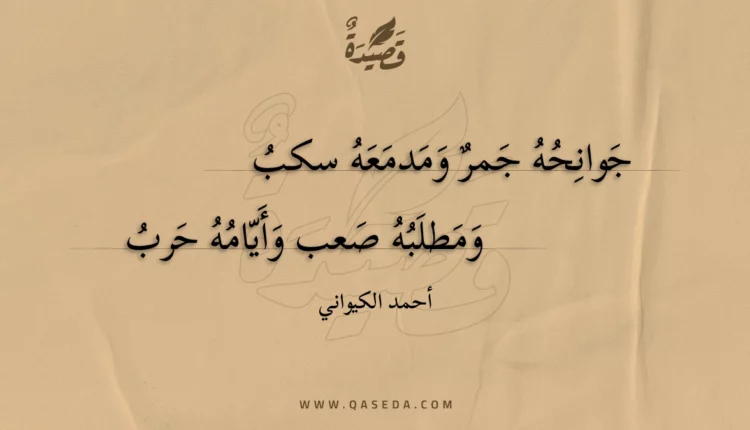 قَصِيْدَةٌ
جَوانِحُهُ جَمرٌ وَمَدمَعَهُ سكبُ
وَمَطلَبُهُ صَعب وَأَيّامُهُ حَربُ
أحمد الكيواني
WWW.QASEDA.COM